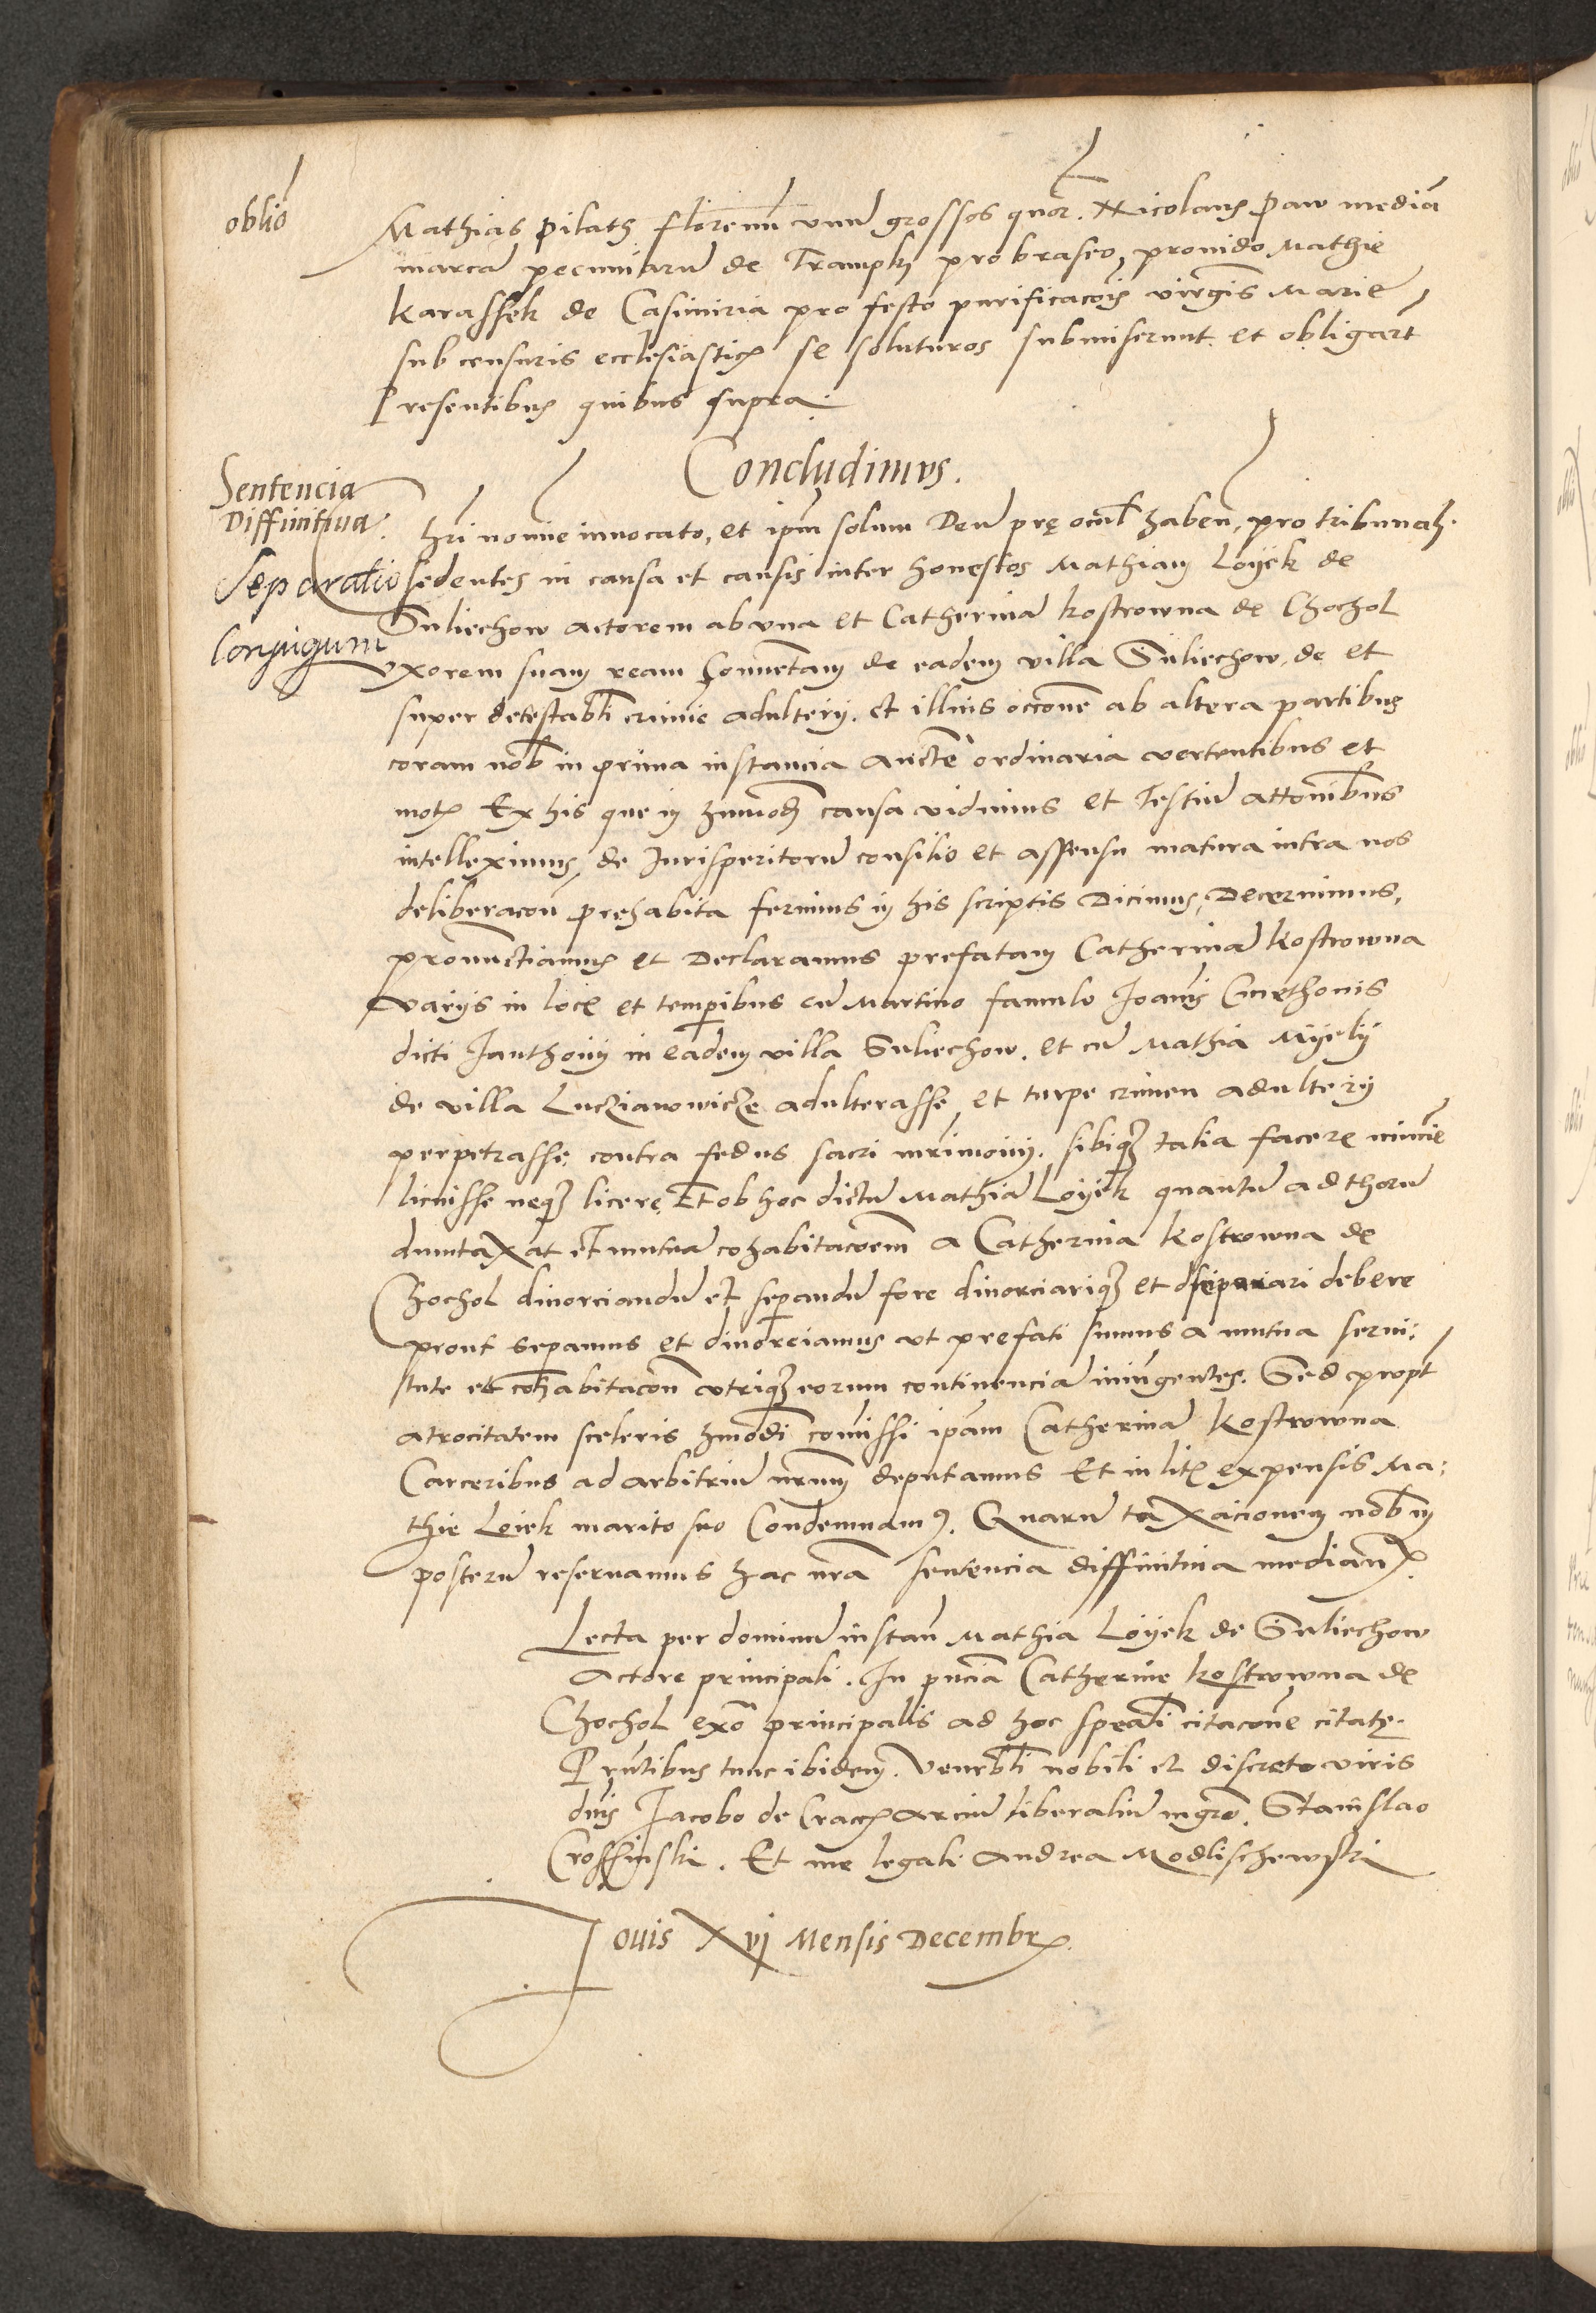 oblio
Mathias Pilath florenum unum grossos quor. Nicolaus Paw mediā
marcā pecuniarū de Trampky pro braseo, provido Mathie
Karassek de Casimiria pro festo purificacois virgīs Marie
sub censuris ecclesiasticꝭ se soluturos submiserunt et obligarūt
Presentibus quibus supra.
Concludimus.
Sentencia
Diffinitiva.
Separatio
Conjugum
Chri nomine invocato, et ipm solum Deū prę ocul haben, pro tribunali
sedentes in causa et causis inter honestos Mathiam Loyek de
Suliechow actorem ab una et Catherinā Kostrowna de Chochol
uxorem suam ream Conventam de eadem villa Suliechow, de et
super detestabli crimie adulterij. et illius occone ab altera partibus
coram nob in prima instancia aucte ordinaria vertentibus et
motꝭ Ex his que in hmōi causa vidimus et Testiū attonibus
intelleximus, de Jurisperitorū consilio et assensu matura intra nos
deliberacon prehabita ferimus in his scriptis Dicimus, Decernimus,
pronunctiamus et Declaramus prefatam Catherinā Kostrowna
Varijs in locꝭ et temporibus cū Martino famulo Joanis Cmethonis
dicti Janthonij in eadem villa Suliechow. et cū Mathia Myely
de villa Luczianowicze adulterasse et turpe crimen adulterij
perpetrasse, contra fedus sacri mrimonij. sibiqꝫ talia facere minime
licuisse neqꝫ licere. Et ob hoc dictū Mathiā Loyek quantū ad thorū
dumtaxat et mutuā cohabitacoem a Catherina Kostrowna de
Chochol divorciandū et sepandū fore divorciariqꝫ et separari debere
prout sepamus et divorciamus ut prefati sumus a mutua servi:
tute et cohabitacon utriqꝫ eorum continenciā iniungentes. Sed propt
atrocitatem sceleris hmōdi comissi ipam Catherinā Kostrowna
Carceribus ad arbitriū nrum deputamus Et in litꝭ expensis Ma:
thie Loiek marito suo Condemnamꝰ. Quarū taxacionem nob in
posterū reservamus hac nra sentencia diffinitiva medianꝭ.
Lecta per dominū instan Mathia Loyek de Suliechow
Actore principali. In pncia Catherine Kostrowna de
Chochol principalis ad hoc speali citacone citatę.
Prntibus tunc ibidem. Venerbli nobili et discreto viris
dnis Jacobo de Cracꝭ arciū liberaliū mgro. Stanislao
Crossinski. Et me legali Andrea Modlischewski
Jovis xvj Mensis Decembrꝭ.